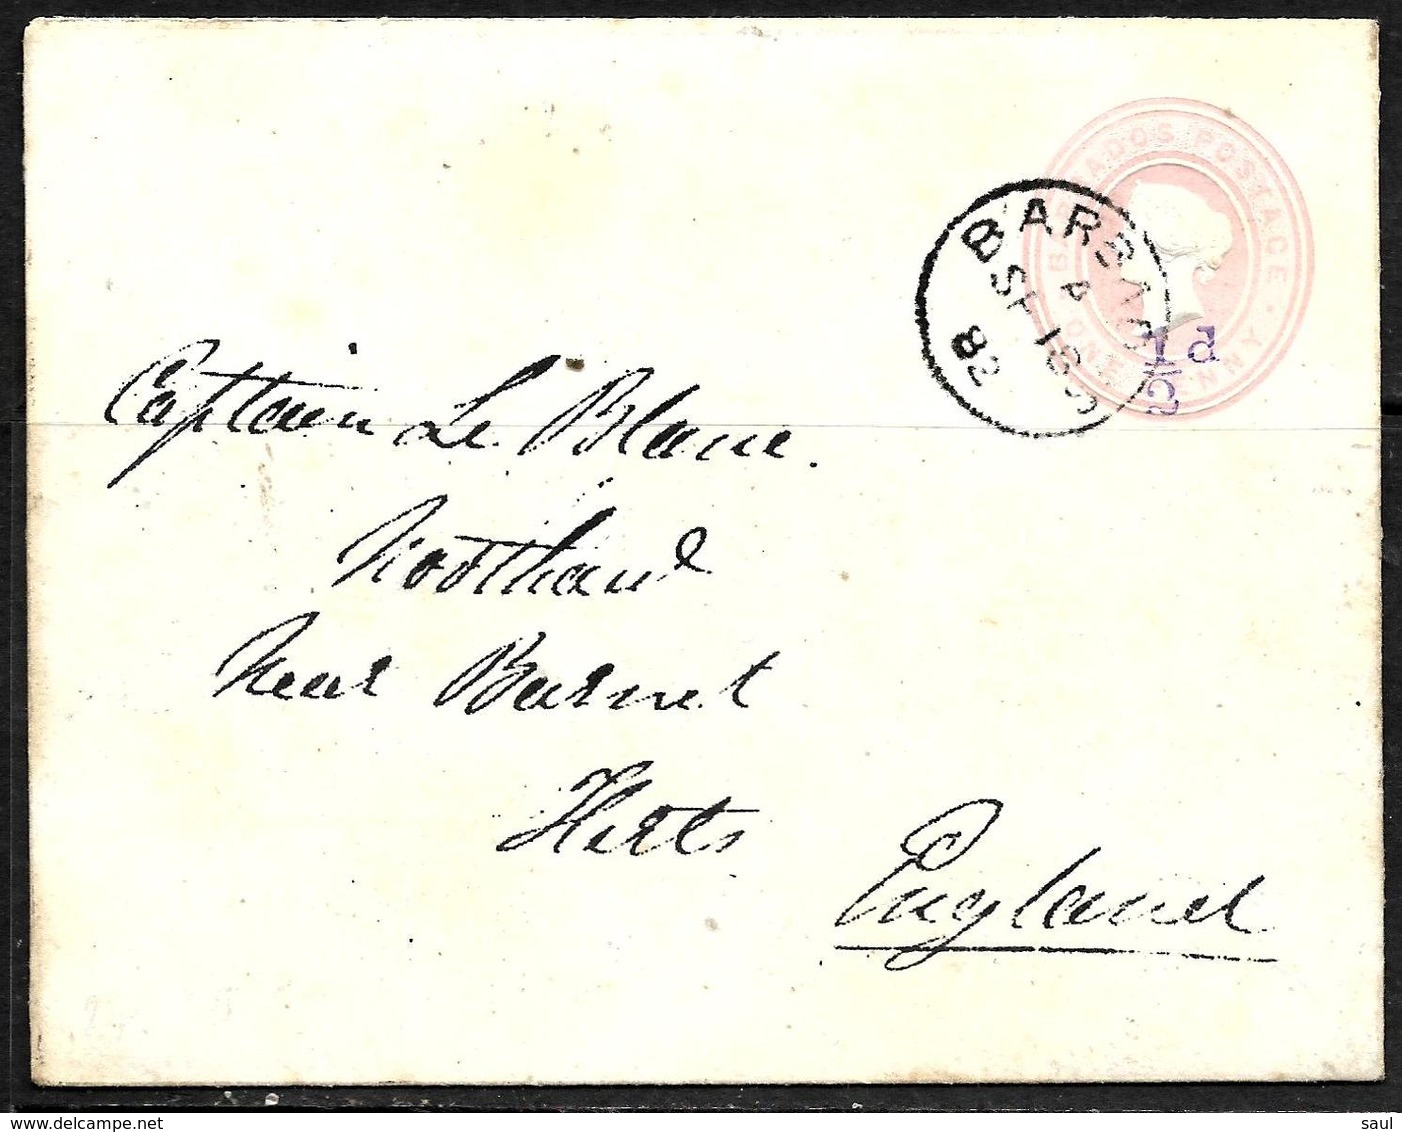 BARBADOS POSTAGE
ONE PENNY
BARBADOS
A
SP 16
82
½d
Captain Le Blanc.
Northaw
Near Barnet
Herts
England
delcampe.net
saul